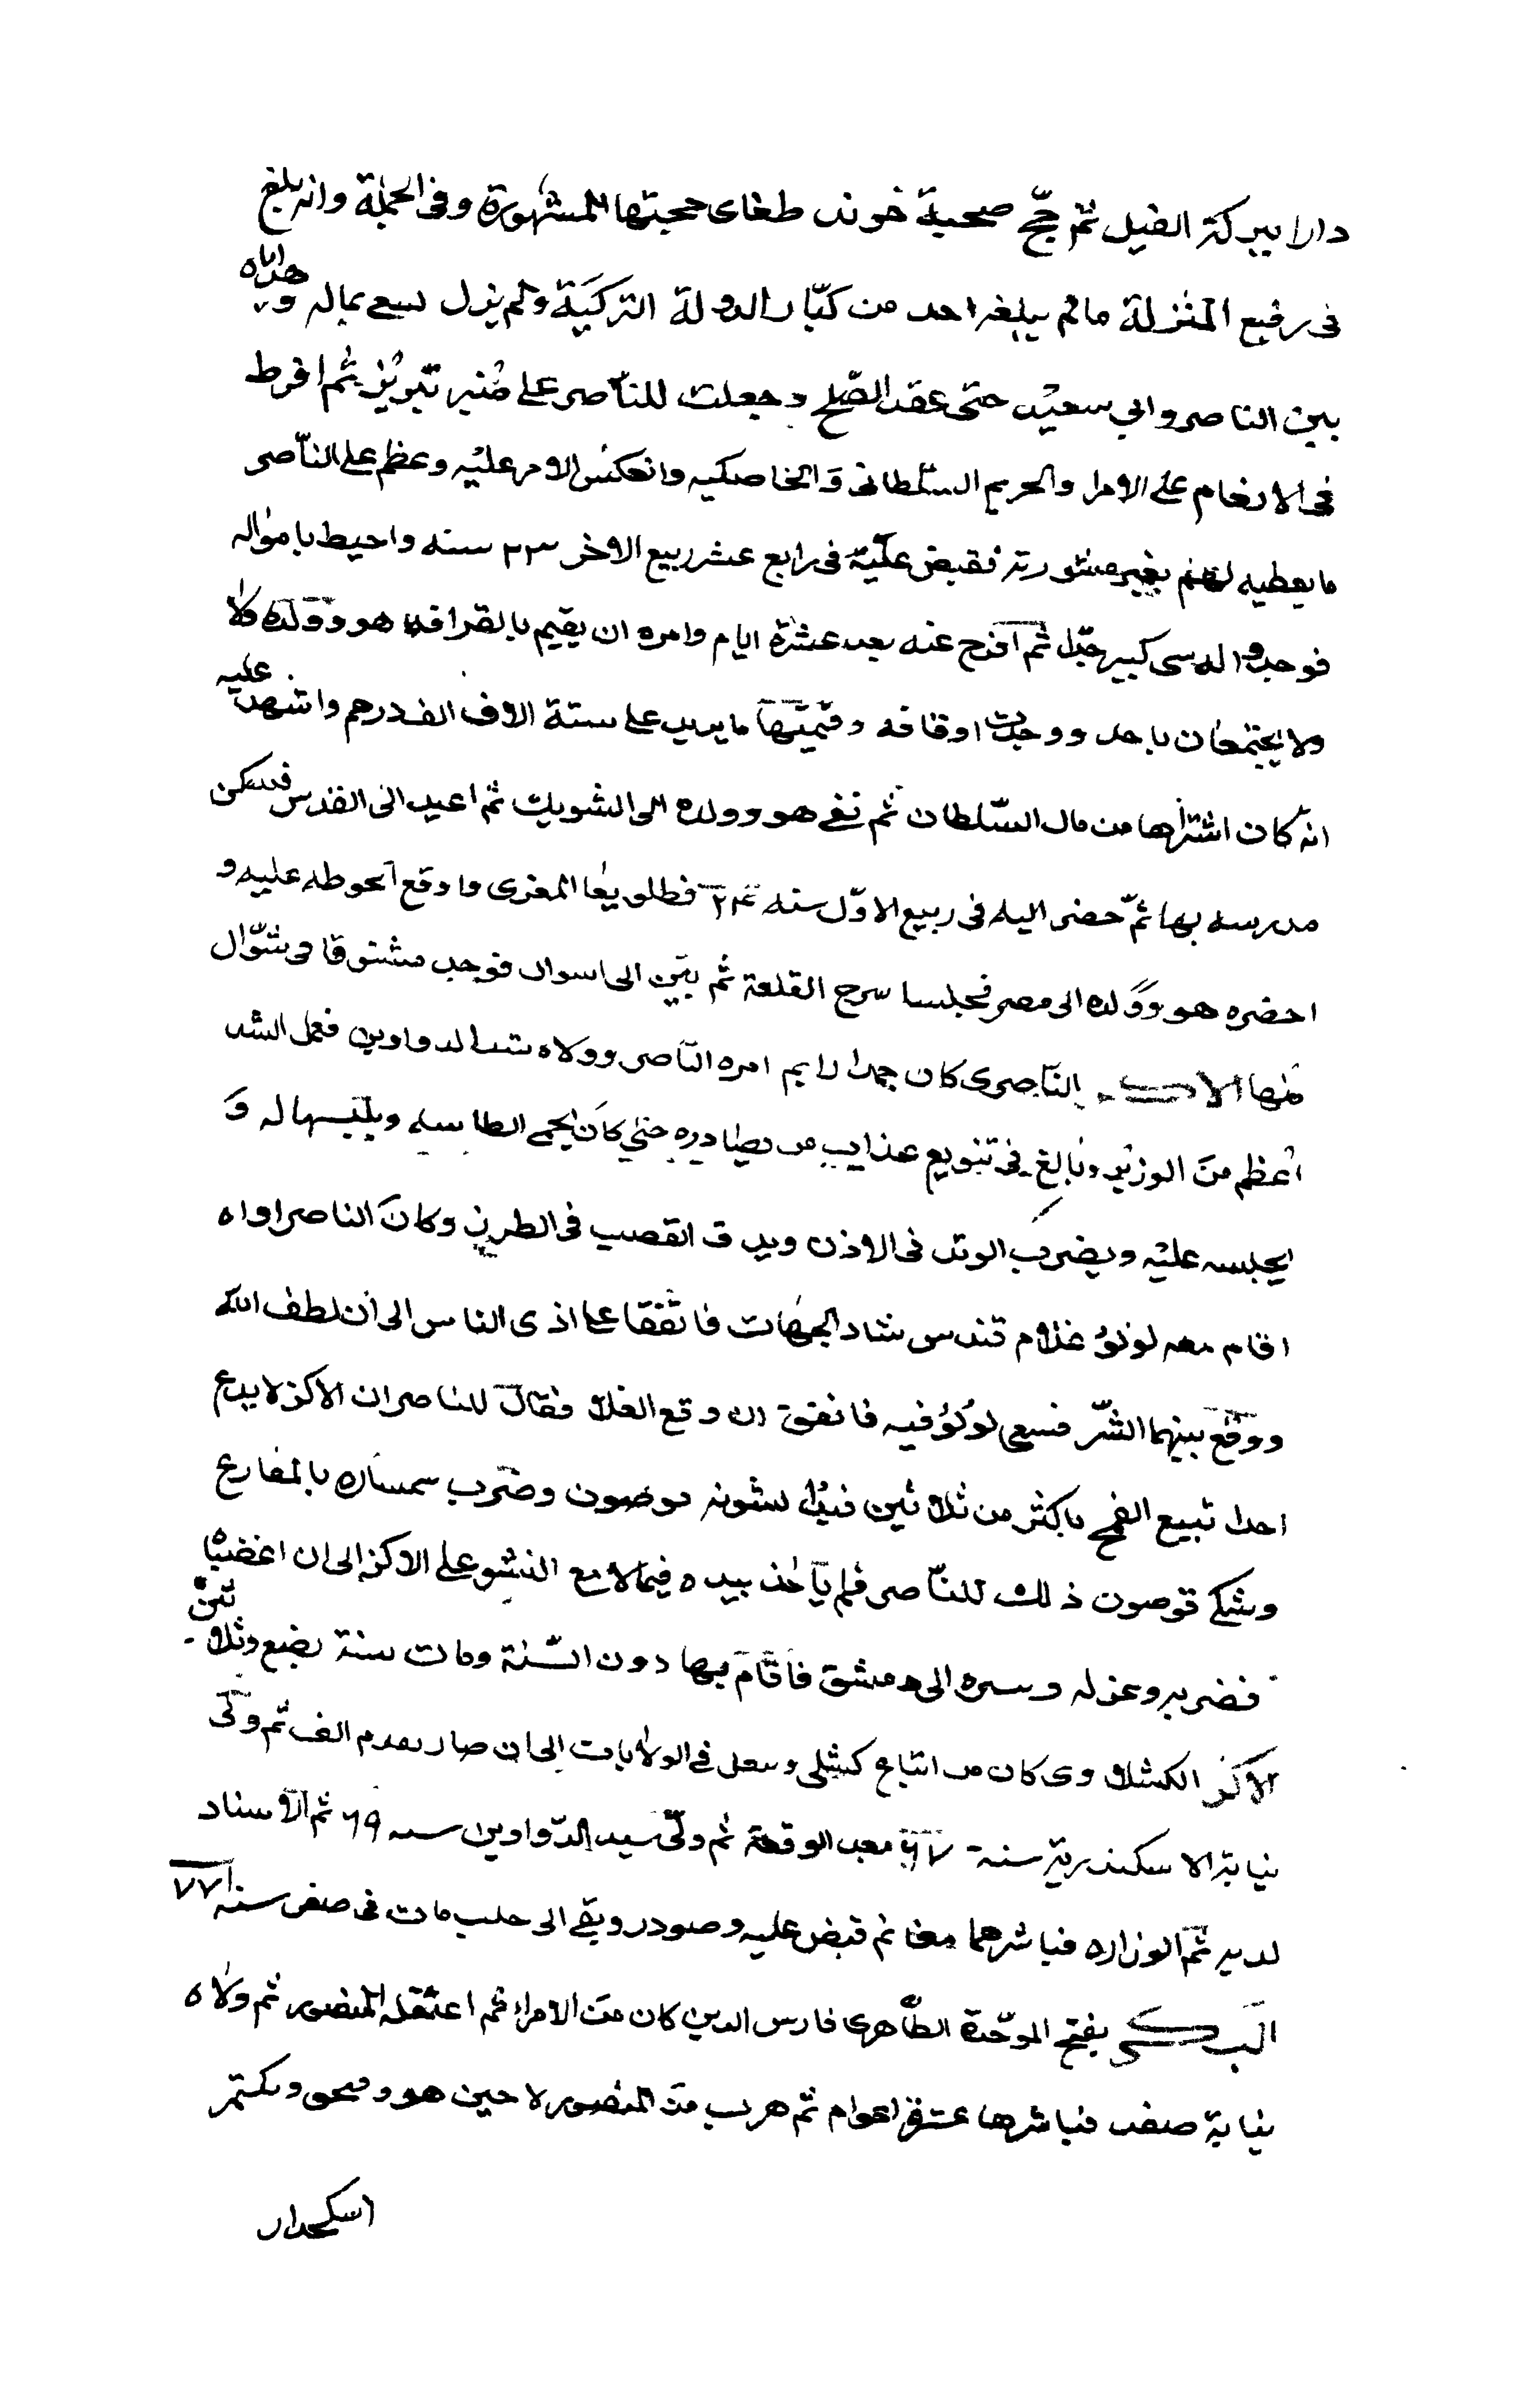 دارا ببركة الفيل ثم حجّ صحبة خوند طغاى حجتها المشهورة وفى الجملة وانه بلغ
فى رفيع المنزلة مالم يبلغه احد من كبّار الدولة التركيّة ولم يزل يسعى بماله وهداياه
بين الناصر وابي سعيد حتى عقد الصّلح وجعلت للنّاصر على منبر تبريز ثم افرط
فى الانعام على الامرا والحريم السّلطانى والخاصكيه وانعكس الامر عليه وعظم على النّاصر
ما يعطيه لهم بغير مشورته فقبض عليه فى رابع عشر ربيع الاخر ٢٣ سنه واحيط بامواله
فوجدوا له سى كبير جدّا ثم افرج عنه بعد عشرة ايام وامره ان يقيم بالقرافه هو وولده ولا
ولا يجتمعان باحد ووجدت اوقافه وقيمتها ما يزيد على ستة الاف الف درهم واشهد عليه
انه كان اشتراها من مال السّلطان ثم نفى هو وولده الى الشوبك ثم اعيد الى القدس فسكن
مدرسه بها ثمّ حضر اليه فى ربيع الاوّل سنه ٢٤ قطلوبغا المغربى واوقع الحوطه عليه و
احضره هو وولده الى مصر فجلسا سرح القلعة ثم بيّن الى اسوان فوجد مشنوقا فى شوّال
منها الاكز النّاصرى كان جمدارا ثم امره النّاصر وولاه شد الدواوين فعمل الشد
اعظم من الوزير وبالغ فى تنويع عذاب من يصادره حتى كان يحمى الطاسه ويلبسها له و
يجلسه عليه ويضرب الوتد فى الاذن ويدق القصب فى الظفرين وكان الناصر اولاه
اقام معه لولؤ غلام قندس شاد الجهات فاتفقا على اذى الناس الى ان لطف الله
ووقع بينهما الشّر فسعى لولؤ فيه فاتفق ان وقع الغلا فقال للناصر ان الاكز لا يدع
احدا تبيع القمح باكثر من ثلاثين فنزل لشونه قوصون وضرب سمساره بالمقارع
وشكى قوصون ذلك للنّاصر فلم ياخذ بيده فيما لا مع النشو على الاكز الى ان اغضباه
فضربه وعزله وسيره الى دمشق فاقام بها دون السّنة ومات سنة بضع وثلاثين
الاكز الكشلاوى كان من اتباع كشلى وتنقل فى الولايات الى ان صار مقدم الف ثم ولى
نيابة الاسكندرية سنة ٦٧ بعد الوقعة ثم ولّى سيد الدّواوين سنه ٦٩ ثم الاستاد
لديه ثم الوزاره فباشرهما معا ثم قبض عليه وصودر وبقى الى حلب مات فى صفر سنه ٧٧١
البكى بفتح الموحّدة الظّاهرى فارس الدين كان من الامراء ثم اعتقله المنصور ثم ولاه
نيابة صفد فباشرها عشرة اعوام ثم هرب من المنصور لاجين هو وقبجق وبكتمر
اسلحدار